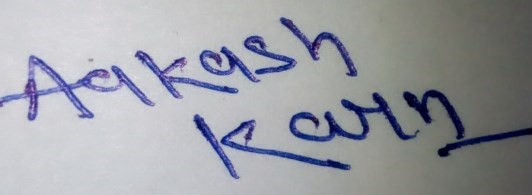 Aakash
Karn